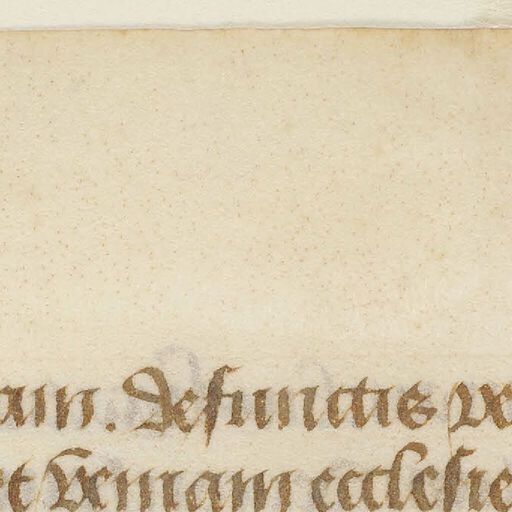 am. defunctis re
et veniam ecclesie